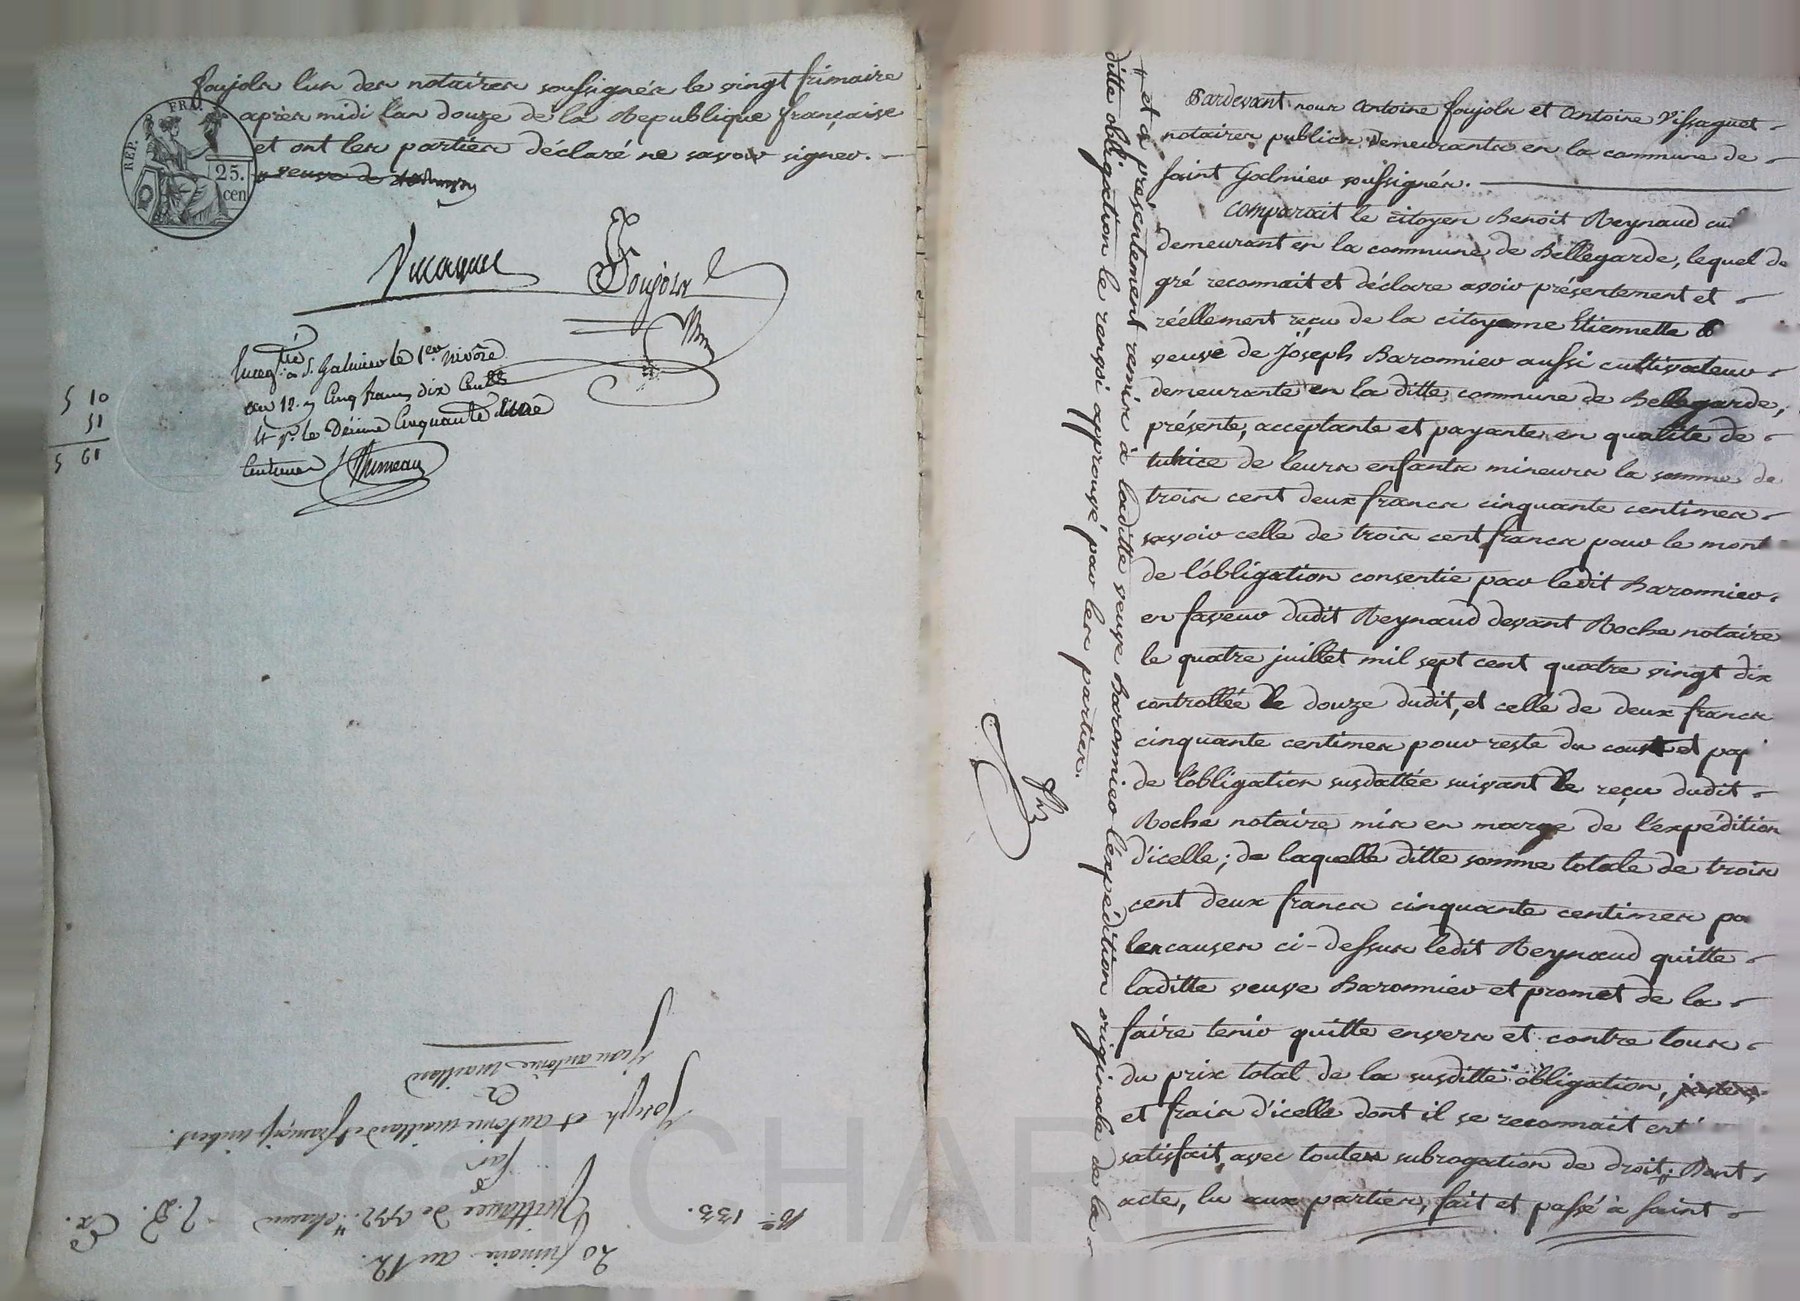 Pardevant nous Antoine Foujols et Antoine Vissaguet
notaires publics demeurants en la commune de
saint Galmier soussignés.
Comparait le citoyen Benoit Reynaud
demeurant en la commune de Bellegarde, lequel de
gré reconnait et déclare avoir présentement et
réellement reçu de la citoyenne Etiennette
veuve de Joseph Baronnier aussi cultivateur
demeurante en la ditte commune de Bellegarde,
présente, acceptante et payante en qualité de
tutrice de leurs enfants mineurs la somme de
trois cent deux francs cinquante centimes
savoir celle de trois cent francs pour le mont
de l'obligation consentie par ledit Baronnier
en faveur dudit Reynaud devant Roche notaire
le quatre juillet mil sept cent quatre vingt dix
controllée le douze dudit, et celle de deux francs
cinquante centimes pour reste du coust et
de l'obligation susdattée suivant le reçu dudit
Roche notaire mis en marge de l'expédition
d'icelle; de laquelle ditte somme totale de trois
cent deux francs cinquante centimes
les causes ci-dessus ledit Reynaud quitte
laditte veuve Baronnier et promet de la
faire tenir quitte envers et contre tous
du prix total de la susditte obligation,
et frais d'icelle dont il se reconnait
satisfait avec toutes subrogation de droit; Dont
acte, lu aux parties, fait et passé à saint
+ et a présentement remis à laditte veuve Baronnier l'expédition originale de la
ditte obligation le renvoi approuvé par les parties.
Foujols l'un des notaires soussignés le vingt frimaire
après midi l'an douze de la République française
et ont les parties déclaré ne savoir signer.
REP. FRA.
25.
cen
Foujols
Enregtré à St Galmier le 1er nivôse
an 12. cinq francs dix centes
et pr le Décime Cinquante
Centimes
5 10
51
5 61
20 frimaire an 12.
No 133.
Quittance de
par
Joseph et antoine maillard et françois imbert.
à
Jean antoine maillard
Ex.
Pascal CHAREYRON